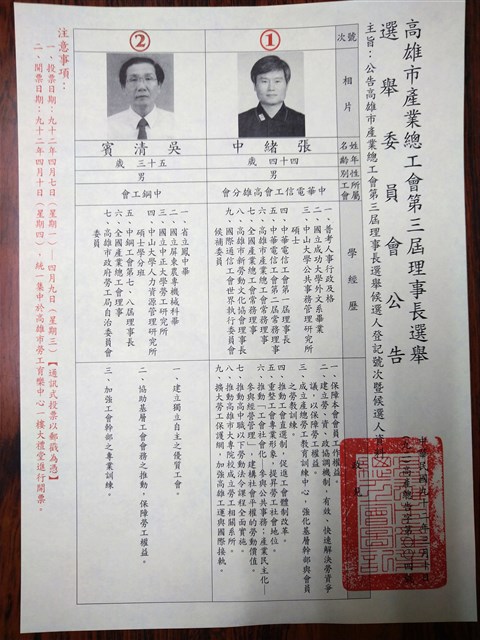 高雄市產業總工會第三屆理事長選舉
選舉委員會公告
主旨：公告高雄市產業總工會第三屆理事長選舉候選人登記號次暨候選人資料
號次
相片
姓名
年齡
性別
所屬工會
學經歷
政見
①
張緒中
四十四歲
男
中華電信工會高雄分會
一、普考人事行政及格
二、國立成功大學外文系畢業
三、中山大學公共事務管理研究所碩士
四、中華電信工會第一屆理事
五、中華電信工會第二屆常務理事
六、高雄市產業總工會常務理事
七、全國產業總工會常務理事
八、高雄市勞動文化協會理事長
九、國際通信工會世界執行委員會候補委員
一、保障本會會員工作權益。
二、建立勞、資、政協調機制，有效、快速解決勞資爭議，以保障勞工權益。
三、成立產總勞工教育訓練中心，強化基層幹部與會員之勞教訓練。
四、推動工會直選制，促進工會體制改革。
五、重整工會專業形象，提昇勞工社會地位。
六、推動「工會社會化－參與公共事務；產業民主化－參與經營管理」，建構社會平權的勞動價值。
七、推動高中職以下勞動法令課程全面實施。
八、推動高雄市大專院校成立勞工相關系所。
九、擴大勞工保護網，加強高雄工運與國際接軌。
②
吳清賓
五十三歲
男
中鋼工會
一、省立鳳中畢
二、國立屏東農專機械科畢
三、國立中正大學勞工研究所
四、中山大學人力資源管理研究所碩士學分班
五、中鋼工會第七、八屆理事長
六、全國產業總工會理事
七、高雄市政府勞工局自治委員會委員
一、建立獨立自主之優質工會。
二、協助基層工會會務之推動，保障勞工權益。
三、加強工會幹部之專業訓練。
注意事項：
一、投票日期：九十二年四月七日（星期一）－四月九日（星期三）【通訊式投票以郵戳為憑】
二、開票日期：九十二年四月十日（星期四），統一集中於高雄市勞工育樂中心一樓大禮堂進行開票。